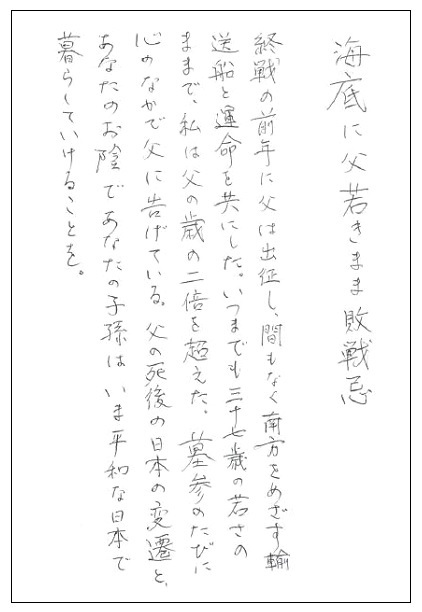 海底に父若きまま敗戦忌
終戦の前年に父は出征し、間もなく南方をめざす輸
送船と運命を共にした。いつまでも三十七歳の若さの
ままで、私は父の歳の二倍を超えた。墓参のたびに
心のなかで父に告げている。父の死後の日本の変遷と、
あなたのお陰であなたの子孫は いま平和な日本で
暮らしていけることを。